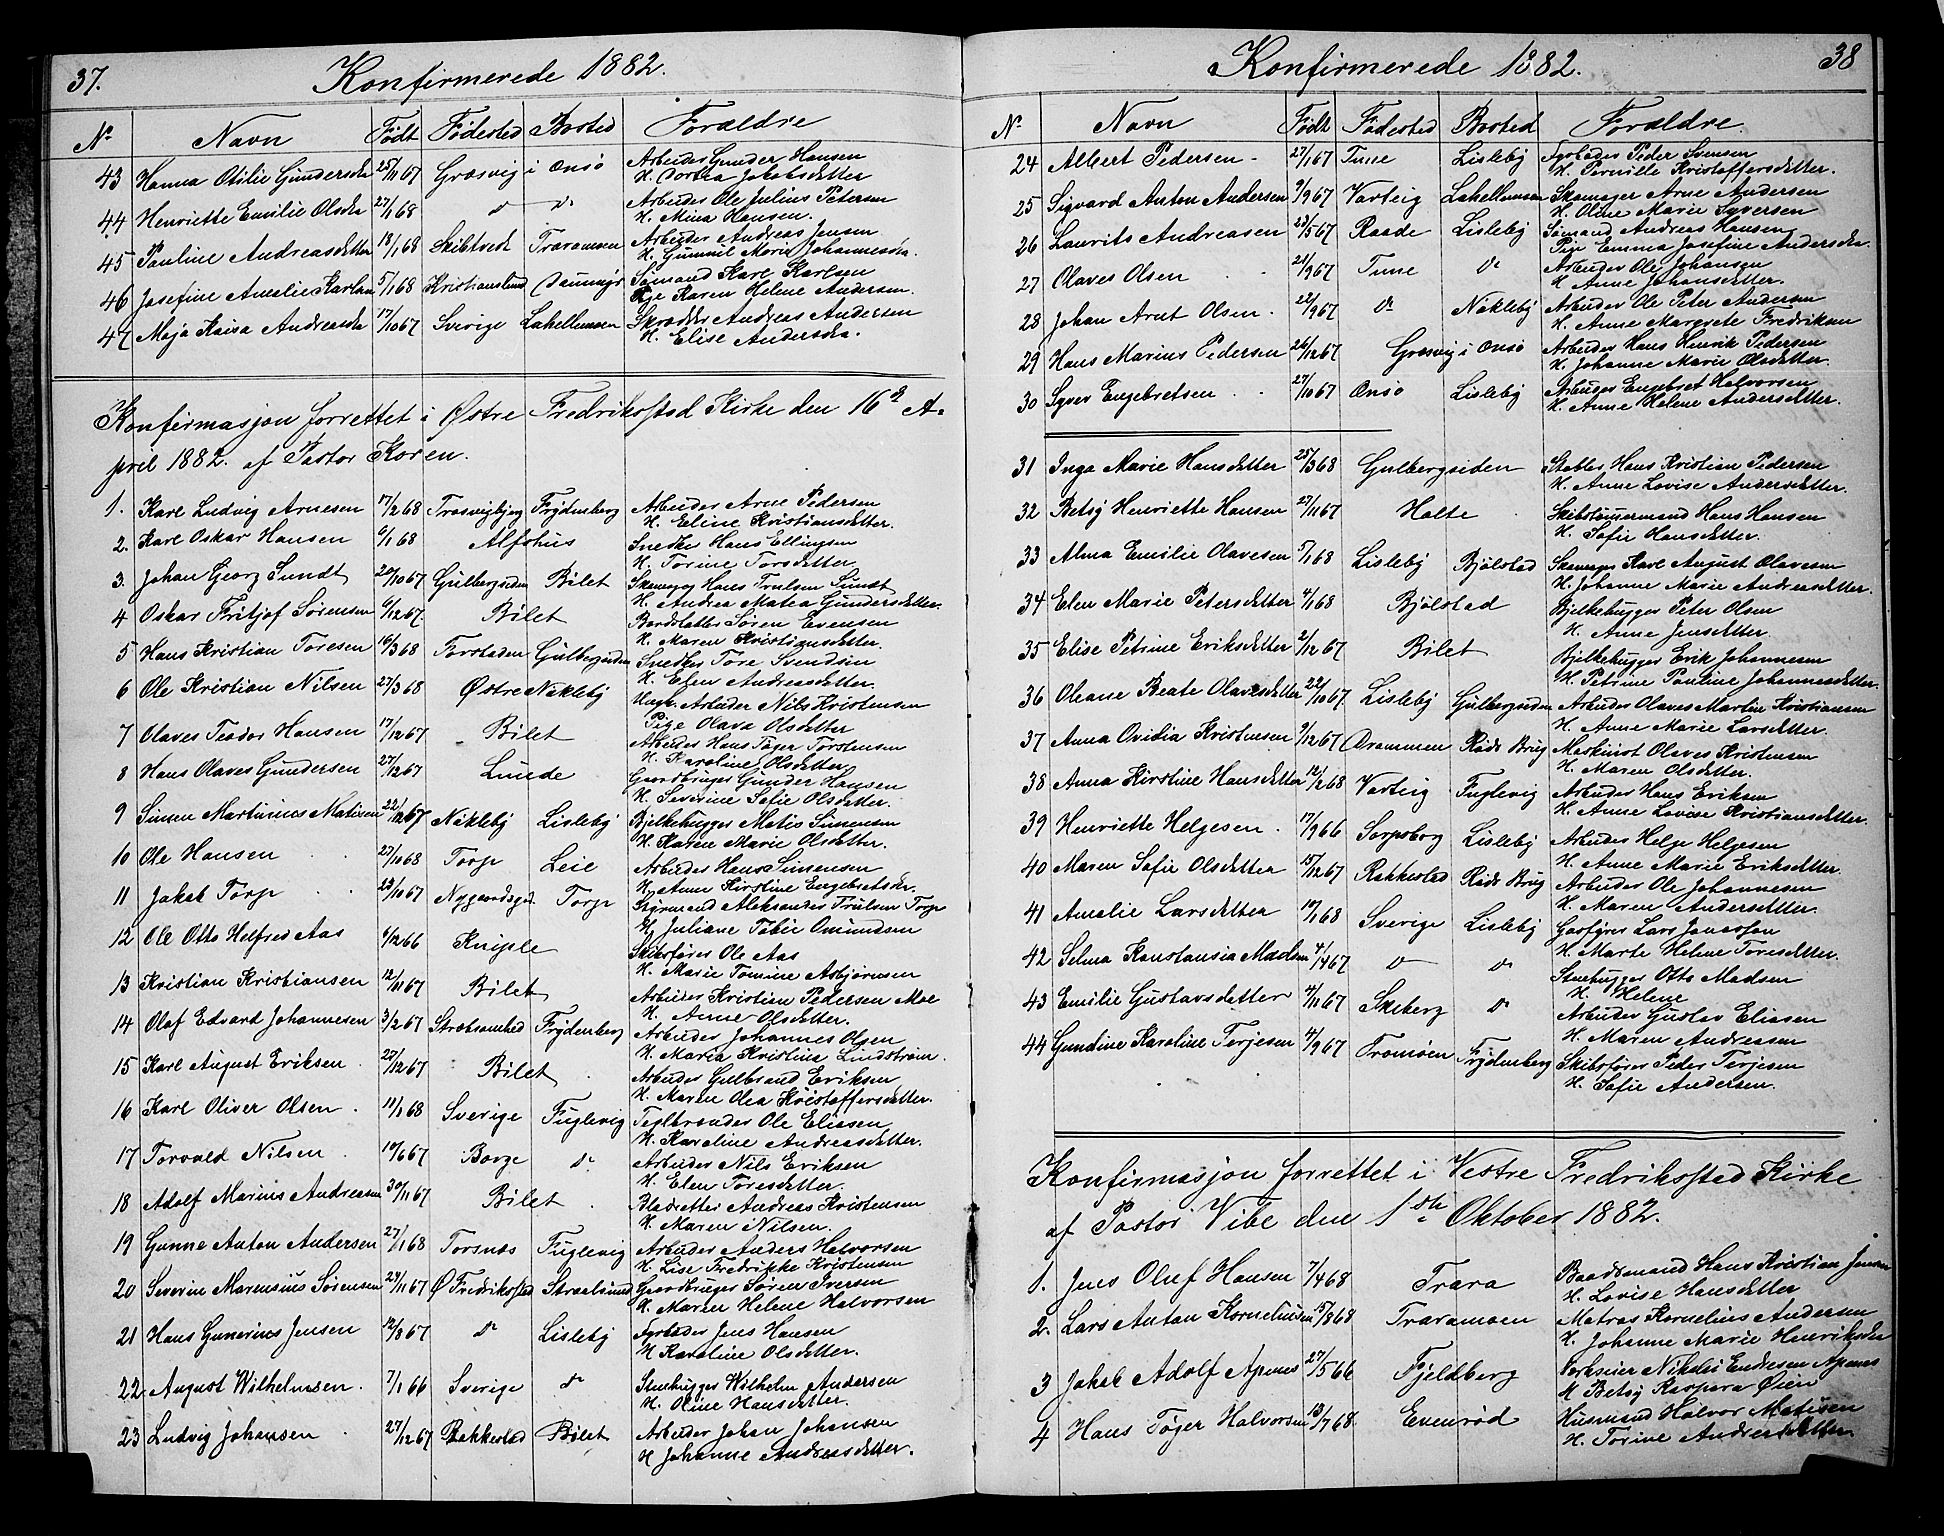 37.
Konfirmerede 1882.
No Navn Født Fødested Bosted Forældre
43 Hanna Otilie Gundersdt 25/11 67 Græsvig i Onsø Arbeider Gunder Hansen
H. Dortea Jakobsdetter
44 Henriette Emilie Olsdtr 27/1 68 do do Arbeider Ole Julius Petersen
H. Mina Hansen.
45 Pauline Andreasdetter 18/1 68 Skibtvedt Traramoen Arbeider Andreas Jensen
H. Gunnil Marie Johannesdtr.
46 Josefine Amalie Karlsen 5/1 68 Kristianslund Sømand Karl Karlsen
Pige Karen Helene Andersen.
47 Maja Kaisa Andreasdtr 17/10 67 Sverige Lahellemoen Skrædder Andreas Andersen
H. Elise Andersdtr.
Konfirmasjon forrettet i Østre Fredriksstad Kirke den 16de A-
pril 1882. af Pastor Koren.
1. Karl Ludvig Arnesen 17/2 68 Trosvigbjerg Frydenberg Arbeider Arne Pedersen
H. Eline Kristiansdetter.
2. Karl Oskar Hansen 6/1 68 Alfshus Snedker Hans Ellingsen
H. Torine Torsdetter
3. Johan Georg Sundt 20/10 67 Gulbergsiden Bilet Skomager Hans Trulsen Sundt
H. Andrea Matea Gundersdetter.
4 Oskar Fritjof Sørensen 6/12 67. Bilet Bordstabler Søren Evensen
H. Maren Kristiansdetter.
5 Hans Kristian Toresen 16/3 68 Torstaden Gulbergsiden Snedker Tore Svendsen
H. Elen Andreasdetter.
6 Ole Kristian Nilsen 27/3 68 Østre Nakleby Ungk. Arbeider Nils Kristensen
Pige Olava Olsdetter
7 Olaves Teodor Hansen 17/12 67 Bilet Arbeider Hans Tøger Torstensen
H. Karoline Olsdetter
8 Hans Olaves Gundersen 27/12 67 Lunde Gaardbruger Gunder Hansen
H. Severine Sofie Olsdetter.
9 Simen Martinius Matisen 22/12 67 Nakleby Lisleby Bjelkehugger Matis Simensen
H. Karen Marie Olsdetter.
10 Ole Hansen 27/10 68 Torp Leie Arbeider Hans Simensen
H. Anne Kirstine Engebretsdtr.
11 Jakob Torp 23/10 67 Nygaardsgd Torp Styrmand Aleksander Trulsen Torp
H. Juliane Tobie Omundsen
12 Ole Otto Helfred Aas 6/12 66 Kniple Skibsfører Ole Aas
H. Marie Tomine Asbjørnsen
13 Kristian Kristiansen 12/11 67 Bilet Arbeider Kristian Pedersen Moe
H. Anne Olsdetter.
14 Olaf Edvard Johannesen 3/2 67 Stræbsomhed Frydenberg Arbeider Johannes Olsen
H. Maria Kristina Lindstrøm.
15 Karl August Eriksen 27/12 67 Bilet Arbeider Gulbrand Eriksen
H. Maren Olea Kristoffersdetter.
16 Karl Oliver Olsen. 11/1 68 Sverige Fuglevig Teglbrænder Ole Eliasen
H. Karoline Andreasdetter.
17 Torvald Nilsen 10/6 67 Borge do Arbeider Nils Eriksen
H. Elen Toresdetter.
18 Adolf Marius Andreasen 30/11 67 Bilet Bladretter Andreas Kristensen
H. Maren Nilsen.
19 Gunne Anton Andersen 27/1 68 Torsnæs Fuglevig Arbeider Anders Halvorsen
H. Lise Fredrikke Kristensen
20 Severin Marensius Sørensen 29/11 67 Ø Fredriksstad Stralsund Gaardbruger Søren Iversen
H. Maren Helene Halvorsen
21 Hans Gunerius Jensen 12/8 67 do Lisleby Fyrbøder Jens Hansen
H Karoline Olsdetter.
22. August Wilhelmsen. 7/1 66 Sverige do Stenhugger Wilhelm Andersen
H. Oline Hansdetter.
23 Ludvig Johansen 27/12 67 Rakkestad Bilet Arbeider Johan Johansen
H Johanne Andreasdetter.
Konfirmerede 1882. 38
No Navn Født Fødested Bosted Forældre.
24 Albert Pedersen 27/1 67 Tune Lisleby Fyrbøder Peder Svensen
H. Pernille Kristoffersdetter.
25 Sigvard Anton Andersen 9/9 67 Varteig Lahellemoen Skomager Arne Andersen
H. Oline Marie Syversen
26 Laurits Andreasen 23/5 67 Raade Lisleby Sømand Andreas Hansen
Pige Emma Josefine Andersdtr.
27 Olaves Olsen 21/9 67 Tune do Arbeider Ole Johansen
H Anne Johansdetter.
28 Johan Arnt Olsen. 22/9 67 do Nakleby Arbeider Ole Peter Andersen
H. Anne Margrete Fredriksen
29 Hans Marius Pedersen 26/12 67 Græsvig i Onsø Arbeider Hans Henrik Pedersen
H. Johanne Marie Olsdetter.
30 Syver Engebretsen 27/10 67 Onsø Lisleby Arbeider Engebret Halvorsen
H. Anne Helene Andersdetter.
31 Inga Marie Hansdetter 25/3 68 Gulbergsiden Stabler Hans Kristian Pedersen
H. Anne Lovise Andersdetter.
32 Betsy Henriette Hansen 27/11 67 Holte Skibstømermand Hans Hansen
H. Sofie Hansdetter.
33 Alma Emilie Olavesen 5/1 68 Lisleby Bjølstad Skomager Karl August Olavesen
H. Johanne Marie Andreasdetter.
34 Elen Marie Petersdetter 4/1 68 Bjølstad Bjelkehugger Peter Olsen
H. Anne Jensdetter
35 Elise Petrine Eriksdetter 2/12 67 Bilet Bjelkehugger Erik Johannesen
H. Petrine Pauline Johannesdetter.
36 Oleane Beate Olavesdetter 22/10 67. Lisleby Gulbergsiden Arbeider Olaves Martin Kristiansen
H. Anne Marie Larsdetter.
37 Anna Ovidia Kristensen 9/12 67 Drammen Røds Brug Maskinist Olaves Kristensen
H. Maren Olsdetter.
38 Anna Kirstine Hansdetter 12/2 68 Varteig Fuglevig Arbeider Hans Eriksen
H. Anne Lovise Kristiansdetter.
39 Henriette Helgesen. 17/9 66 Sarpsborg Lisleby Arbeider Helge Helgesen
H. Anne Marie Eriksdetter.
40 Maren Sofie Olsdetter 25/12 67 Rakkestad Røds Brug Arbeider Ole Johannesen
H. Maren Andersdetter.
41 Amalie Larsdetter 19/1 68 Sverige Lisleby Gasfyrer Lars Jonassen
H. Marte Helene Toresdetter.
42 Selma Konstansia Madsen 4/4 67 do do Stenhugger Otto Madsen
H. Helene
43 Emilie Gustavsdetter 4/11 67 Skeberg do Arbeider Gustav Eliasen
H. Maren Andreasen
44 Gundine Karoline Terjesen 4/9 67 Tromøen Frydenberg Skibsfører Peder Terjesen
H. Sofie Andersen.
Konfirmasjon forrettet i Vestre Fredriksstad Kirke
af Pastor Vibe den 1ste Oktober 1882.
1. Jens Oluf Hansen 7/4 68 Trara Baadsmand Hans Kristian Jensen
H. Lovise Hansdetter
2. Lars Anton Kornelius­sen 15/8 68 Traramoen Matros Kornelius Andersen
H. Johanne Marie Henriksdtr
3 Jakob Adolf Apenes 27/5 66 Fjeldberg Verkseier Nikolai Endresen Apenes
H Betsy Kaspara Øien
4 Hans Tøger Halvorsen 13/7 68. Evenrød Husmand Halvor Matisen
H. Torine Andreasdetter